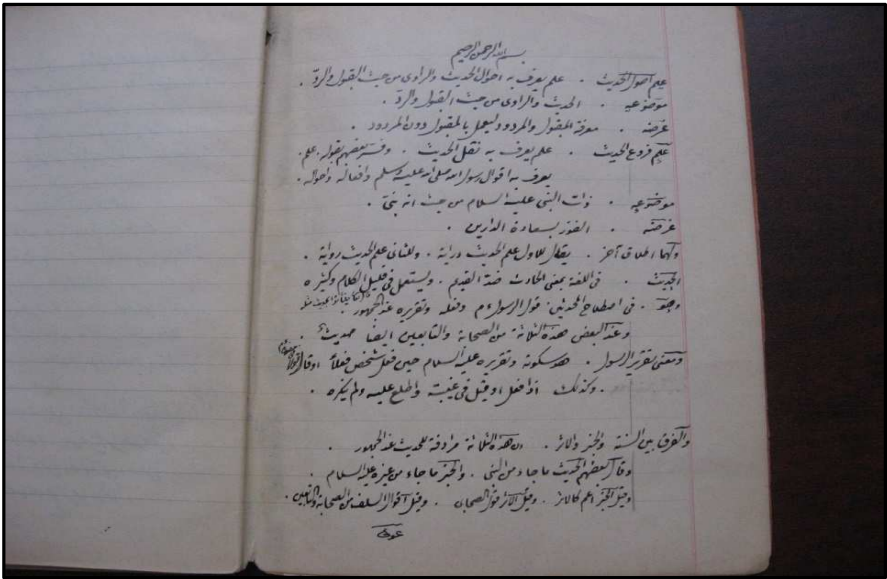 بسم الله الرحمن الرحيم
علم اصول الحديث . علم يعرف به احوال الحديث والراوى من حيث القبول والردّ .
موضوعه . الحديث والراوى من حيث القبول والردّ .
غرضه . معرفة المقبول والمردود ليعمل بالمقبول دون المردود .
علم فروع الحديث . علم يعرف به نقل الحديث . وفسّر بعضهم بقوله . علم .
يعرف به اقوال رسول الله صلى الله عليه وسلم وافعاله واحواله .
موضوعه . ذات النبى عليه السلام من حيث انه نبىّ .
غرضه . الفوز بسعادة الدارين .
ولهما اطلاق آخر . يقال للاول علم الحديث دراية . وللثانى علم الحديث رواية .
الحديث . فى اللغة بمعنى الحادث ضدّ القديم . ويستعمل فى قليل الكلام وكثيره
وهو . فى اصطلاح المحدثين قول الرسول م وفعله وتقريره عند الجمهور
وعند البعض هذه الثلاثة من الصحابة والتابعين ايضا حديث .
ومعنى تقرير الرسول . هو سكوته وتقريره عليه السلام حين فعل شخص فعلاً او قال قولا
. وكذلك اذا فعل او قيل فى غيبته واطلع عليه ولم ينكره .
والفرق بين السنة والخبر والاثر . ان هذه الثلاثة مرادفة للحديث عند الجمهور .
وقال بعضهم الحديث ما جاء من النبى . والخبر ما جاء من غيره عليه السلام .
وقيل الخبر اعم كالاثر . وقيل الاثر قول الصحابى . وقيل اقوال السلف من الصحابة والتابعين .